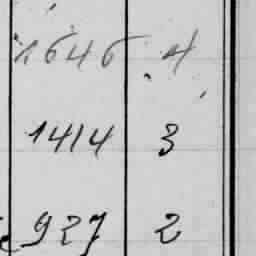 1646 4
1414 3
927 2